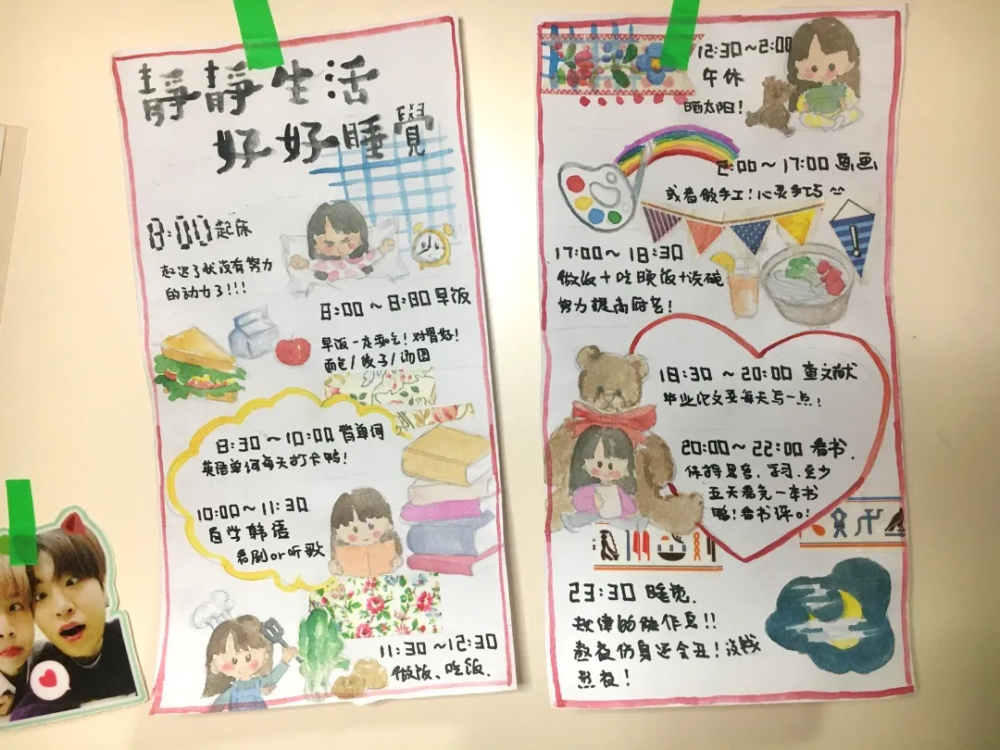 靜靜生活
好好睡覺
8:00起床
起迟了就没有努力
的动力了!!!
8:00～8:30早饭
早饭一定要吃!对胃好!
面包/饺子/汤圆
8:30～10:00背单词
英语单词每天打卡鸭!
10:00～11:30
自学韩语
看剧or听歌
11:30～12:30
做饭、吃饭.
12:30～2:00
午休
晒太阳!
2:00～17:00画画
或者做手工!心灵手巧
17:00～18:30
做饭+吃晚饭+洗碗
努力提高厨艺!
18:30～20:00查文献
毕业论文要每天写一点!
20:00～22:00看书.
保持思考、学习.至少
五天看完一本书
鸭!看书评o!
23:30睡觉.
规律的作息!!
熬夜伤身还会丑!没钱
熬夜!